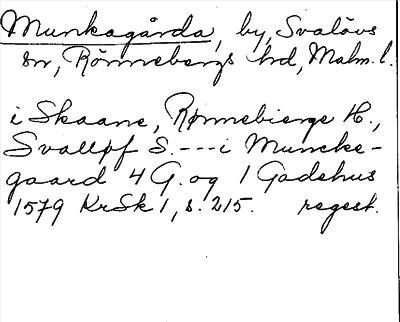 Munkagårda, by, Svalövs
sn, Rönnebergs hd, Malm. l.
i Skaane, Rønnebierge H.,
Svalløf S. --- i Muncke-
gaard 4 G. og 1 Gadehus
1579 KrSk 1, s. 215. regest.